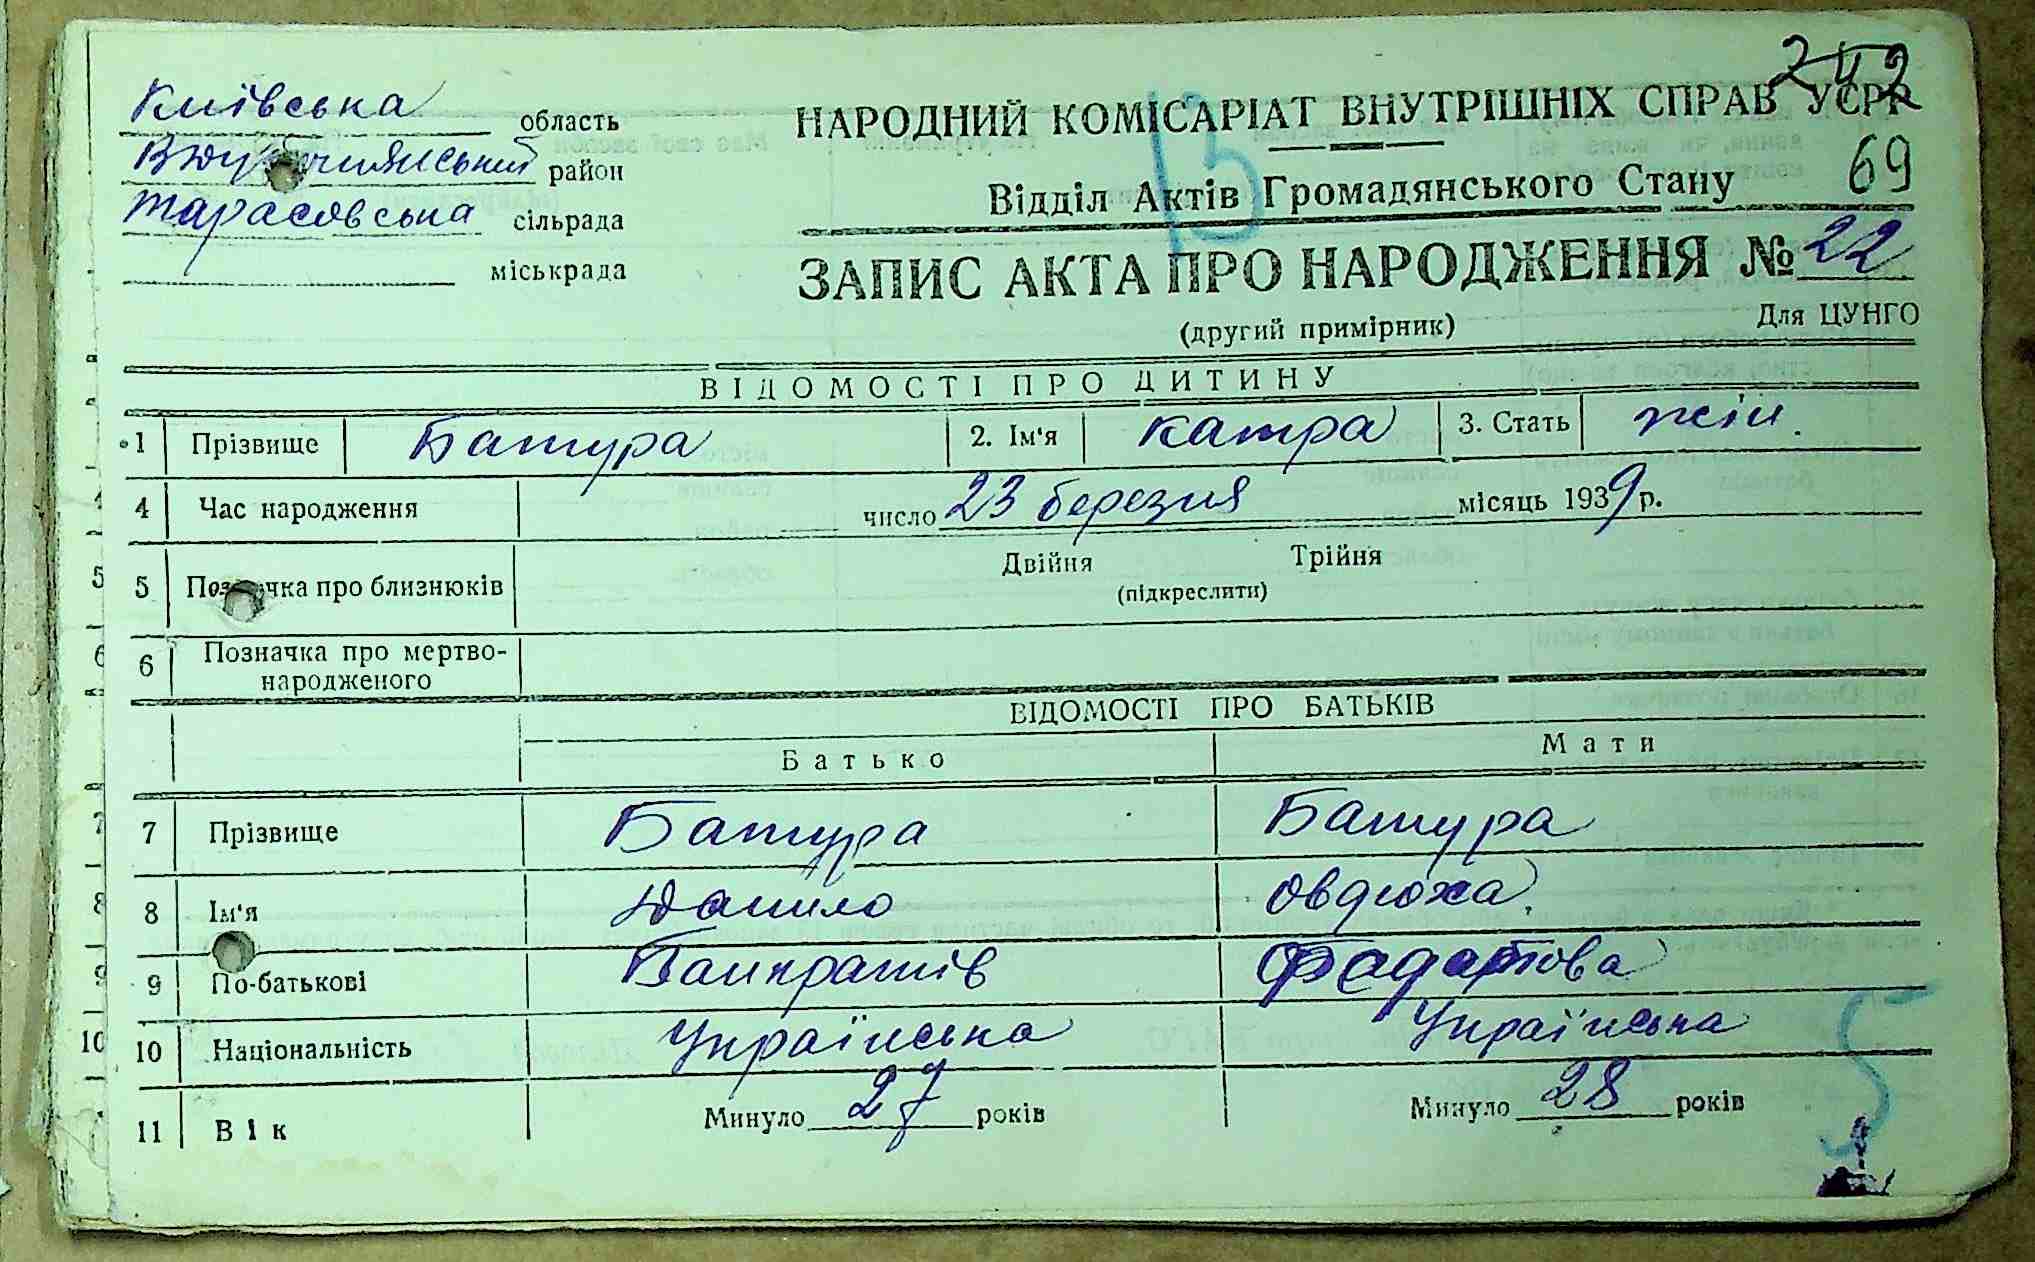 Київська область
район
Тарасовська сільрада
міськрада
242
НАРОДНИЙ КОМІСАРІАТ ВНУТРІШНІХ СПРАВ УСРР
69
Відділ Актів Громадянського Стану
13
ЗАПИС АКТА ПРО НАРОДЖЕННЯ № 22
(другий примірник) Для ЦУНГО
ВІДОМОСТІ ПРО ДИТИНУ
1 Прізвище Батура 2. Ім'я Катра 3. Стать жін.
4 Час народження число 23 березня місяць 1939 р.
5 Позначка про близнюків Двійня Трійня
(підкреслити)
6 Позначка про мертво-
народженого
ВІДОМОСТІ ПРО БАТЬКІВ
Батько Мати
7 Прізвище Батура Батура
8 Ім'я Данило Овдюха
9 По-батькові Панкратів
10 Національність Українська Українська
11 Вік Минуло 27 років Минуло 28 років
5